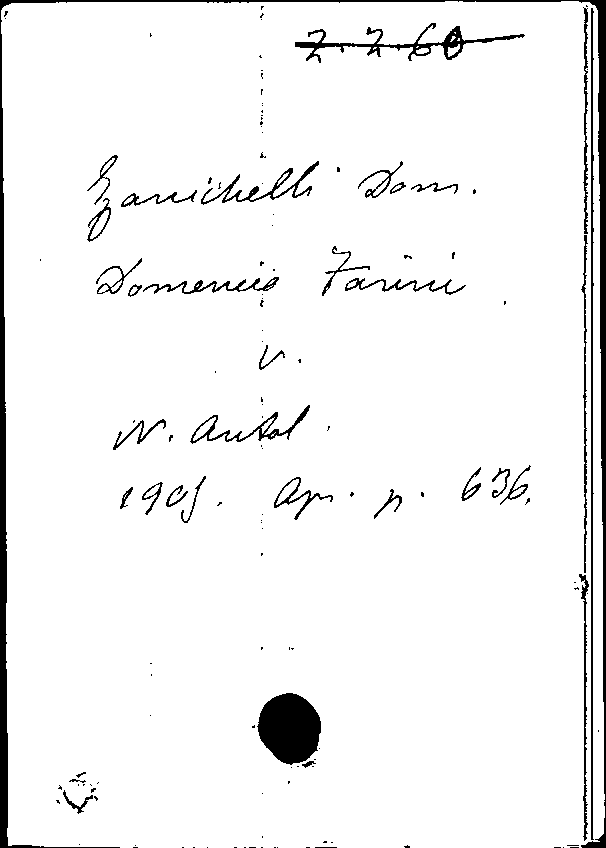 2.2.60
Zanichelli Dom.
Domenico Farini
v.
N. Antol.
1905. Apr. p. 636.